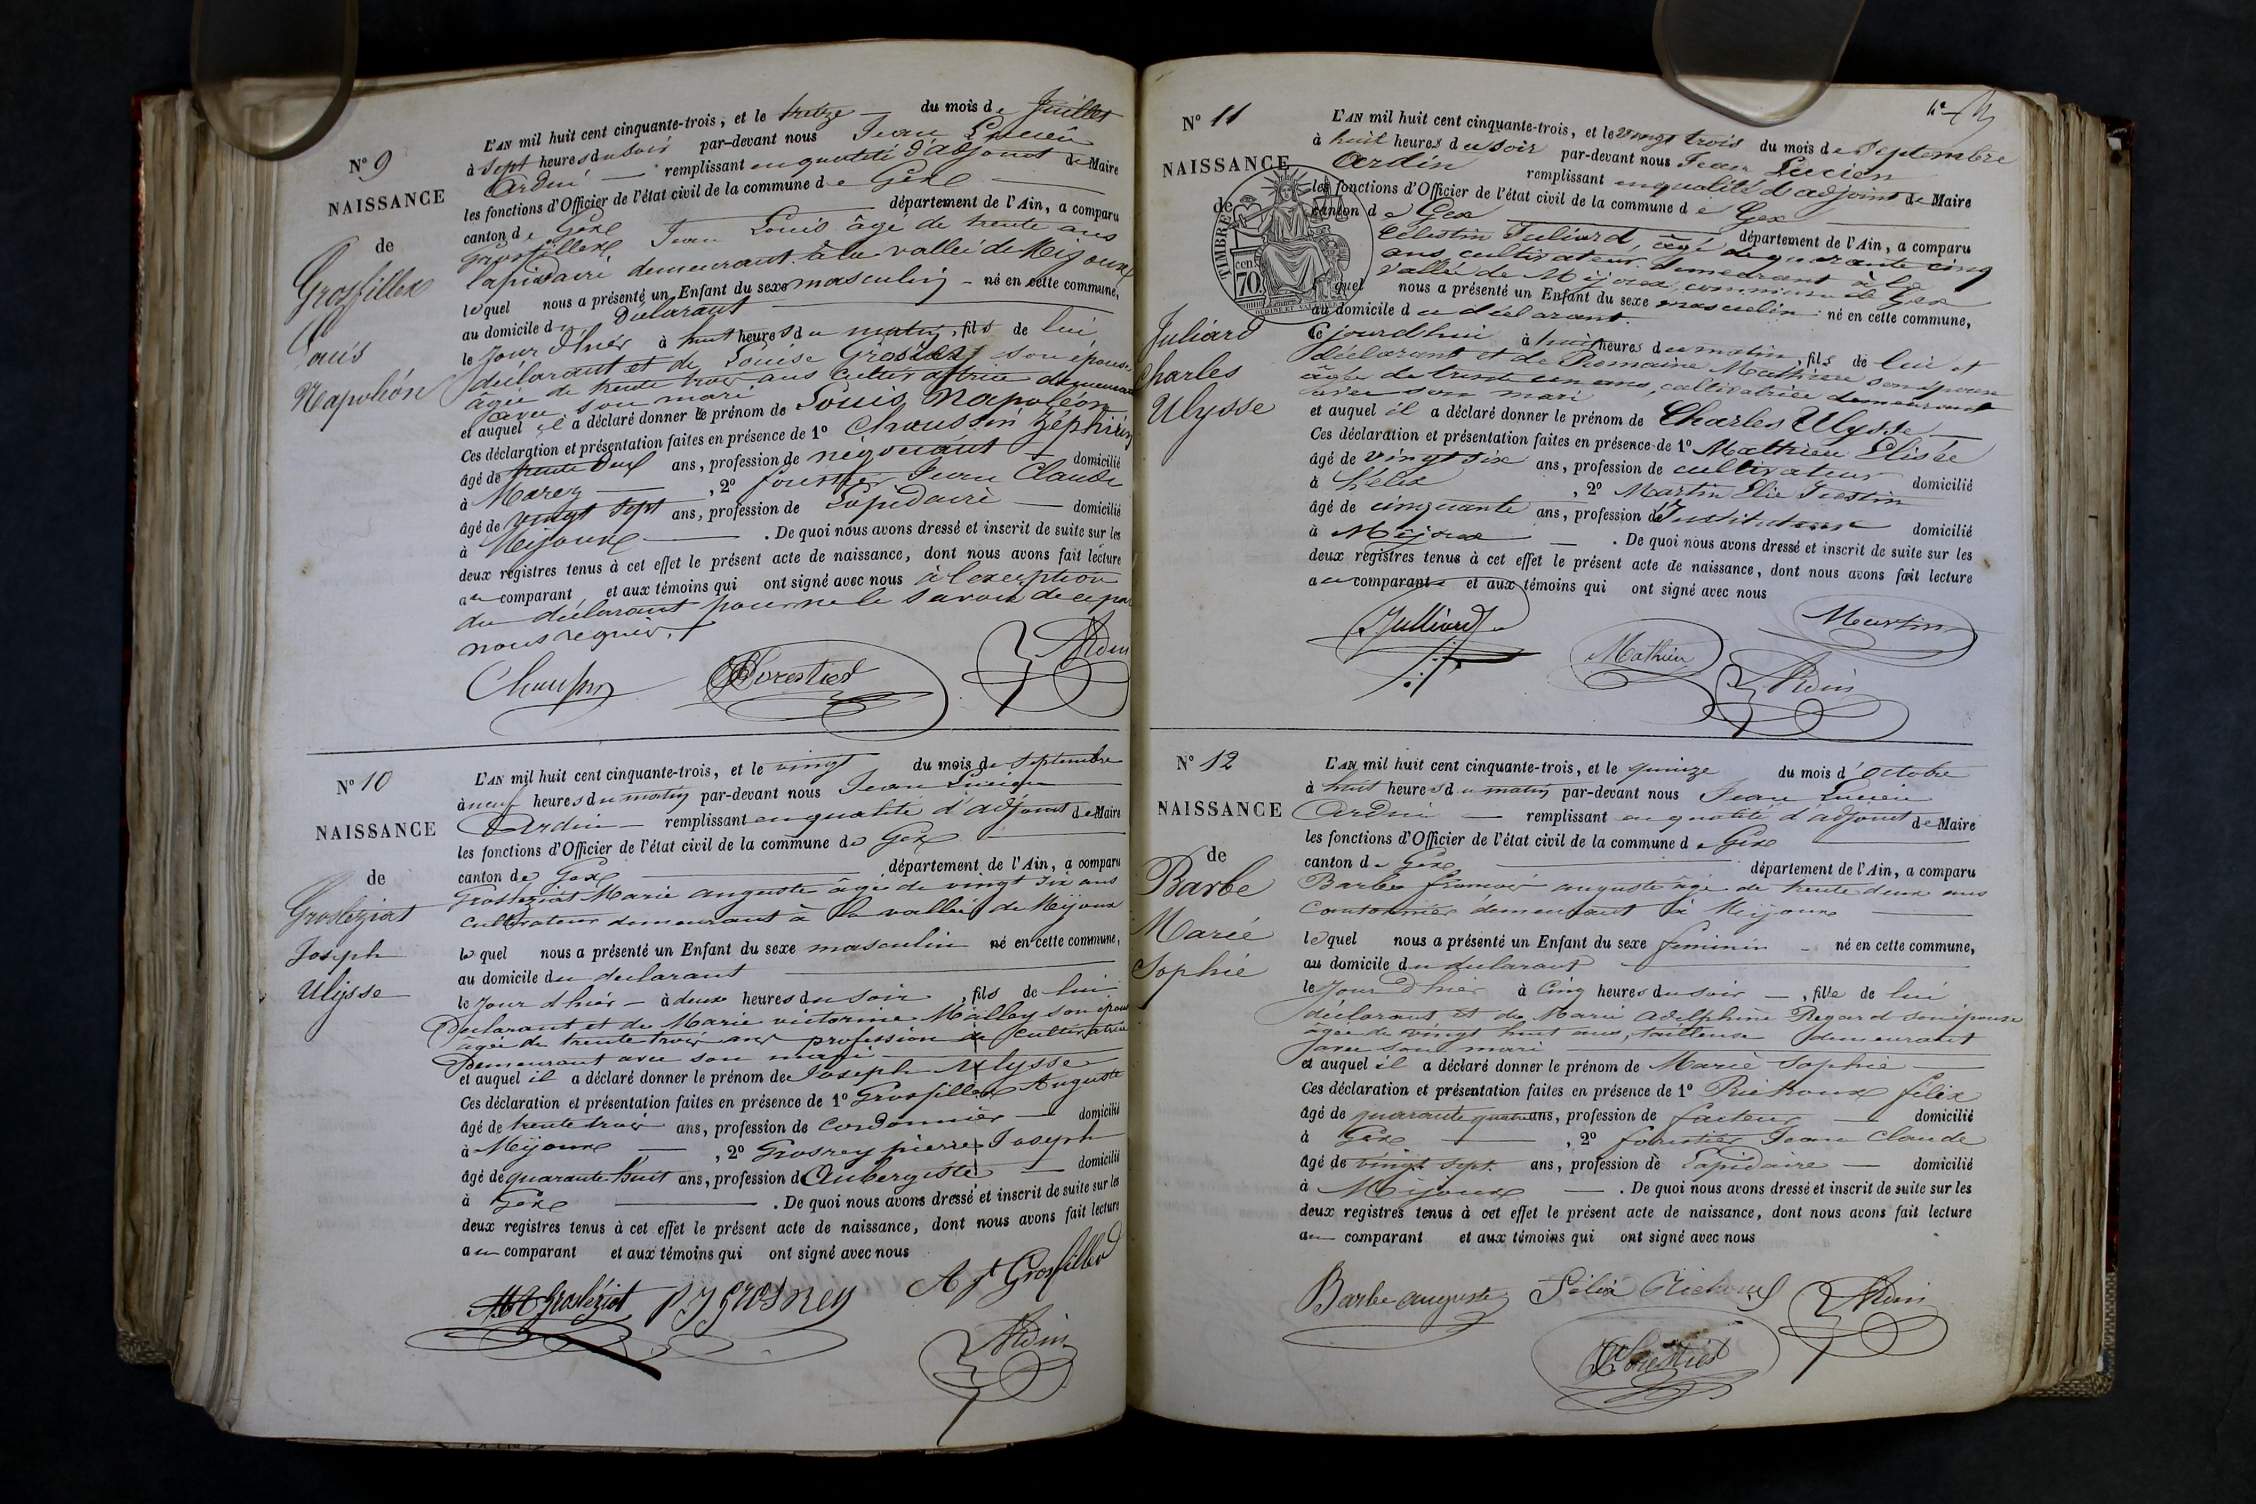 N° 9
NAISSANCE
de
Grosfillex
Louis
Napoléon
L'AN mil huit cent cinquante-trois, et le treize du mois de Juillet
à sept heures du soir par-devant nous Jean Lucien
Ardin remplissant en qualité d'adjoint de Maire
les fonctions d'Officier de l'état civil de la commune de Gex
canton de Gex département de l'Ain, a comparu
Grosfillex Jean Louis âgé de trente ans
lapidaire demeurant à la vallée de Mijoux
lequel nous a présenté un Enfant du sexe masculin né en cette commune,
au domicile du déclarant
le jour d'hier à huit heures du matin, fils de lui
déclarant et de Louise son épouse
âgée de trente trois ans cultivatrice demeurant
avec son mari
et auquel il a déclaré donner le prénom de Louis Napoléon
Ces déclaration et présentation faites en présence de 1° Chaussin Zéphirin
âgé de trente deux ans, profession de négociant domicilié
à Morez, 2° forestier Jean Claude
âgé de vingt sept ans, profession de Lapidaire domicilié
à Mijoux. De quoi nous avons dressé et inscrit de suite sur les
deux registres tenus à cet effet le présent acte de naissance, dont nous avons fait lecture
au comparant et aux témoins qui ont signé avec nous à l'exception
du déclarant pour ne le savoir de ce par
nous requis.
Chaussin Forestier Ardin
N° 10
NAISSANCE
de
Grosléziat
Joseph
Ulysse
L'AN mil huit cent cinquante-trois, et le vingt du mois de Septembre
à neuf heures du matin par-devant nous Jean Lucien
Ardin remplissant en qualité d'adjoint de Maire
les fonctions d'Officier de l'état civil de la commune de Gex
canton de Gex département de l'Ain, a comparu
Grosléziat Marie auguste âgé de vingt six ans
cultivateur demeurant à la vallée de Mijoux
lequel nous a présenté un Enfant du sexe masculin né en cette commune,
au domicile du déclarant
le jour d'hier à deux heures du soir, fils de lui
Déclarant et de Marie victorine Malley son épouse
âgée de trente trois ans profession de cultivatrice
Demeurant avec son mari
et auquel il a déclaré donner le prénom de Joseph Ulysse
Ces déclaration et présentation faites en présence de 1° Grosfillex Auguste
âgé de trente trois ans, profession de cordonnier domicilié
à Mijoux, 2° Grosrey pierre Joseph
âgé de quarante huit ans, profession d'Aubergiste domicilié
à Gex. De quoi nous avons dressé et inscrit de suite sur les
deux registres tenus à cet effet le présent acte de naissance, dont nous avons fait lecture
au comparant et aux témoins qui ont signé avec nous
MA Grosléziat PJ GROSREY Agt Grosfillex
Ardin
N° 11
NAISSANCE
de
TIMBRE
70
Juliard
Charles
Ulysse
L'AN mil huit cent cinquante-trois, et le vingt trois du mois de Septembre
à huit heures du soir par-devant nous Jean Lucien
Ardin remplissant en qualité d'adjoint de Maire
les fonctions d'Officier de l'état civil de la commune de Gex
canton de Gex département de l'Ain, a comparu
Célestin Juliard, âgé de quarante cinq
ans, cultivateur demeurant à la
vallée de Mijoux, commune de Gex
lequel nous a présenté un Enfant du sexe masculin né en cette commune,
au domicile du déclarant
Ce jourdhui à huit heures du matin, fils de lui et
déclarant et de Romaine Mathieu son épouse
âgée de trente un ans, cultivatrice demeurant
avec son mari
et auquel il a déclaré donner le prénom de Charles Ulysse
Ces déclaration et présentation faites en présence de 1° Mathieu Elisée
âgé de vingt six ans, profession de cultivateur domicilié
à Lélex, 2° Martin Elie Justin
âgé de cinquante ans, profession d'Instituteur domicilié
à Mijoux. De quoi nous avons dressé et inscrit de suite sur les
deux registres tenus à cet effet le présent acte de naissance, dont nous avons fait lecture
au comparant et aux témoins qui ont signé avec nous
Julliard Mathieu Martin
Ardin
N° 12
NAISSANCE
de
Barbe
Marie
Sophie
L'AN mil huit cent cinquante-trois, et le quinze du mois d'Octobre
à huit heures du matin par-devant nous Jean Lucien
Ardin remplissant en qualité d'adjoint de Maire
les fonctions d'Officier de l'état civil de la commune de Gex
canton de Gex département de l'Ain, a comparu
Barbe françois auguste âgé de trente deux ans
Cantonnier demeurant à Mijoux
lequel nous a présenté un Enfant du sexe feminin né en cette commune,
au domicile du déclarant
le Jour d'hier à Cinq heures du soir, fille de lui
déclarant et de Marie adelphine Regard son épouse
âgée de vingt huit ans, tailleuse demeurant
avec son mari
et auquel il a déclaré donner le prénom de Marie Sophie
Ces déclaration et présentation faites en présence de 1° félix
âgé de quarante quatre ans, profession de facteur domicilié
à Gex, 2° forestier Jean Claude
âgé de vingt sept ans, profession de Lapidaire domicilié
à Mijoux. De quoi nous avons dressé et inscrit de suite sur les
deux registres tenus à cet effet le présent acte de naissance, dont nous avons fait lecture
au comparant et aux témoins qui ont signé avec nous
Barbe auguste Félix Ardin
Forestier